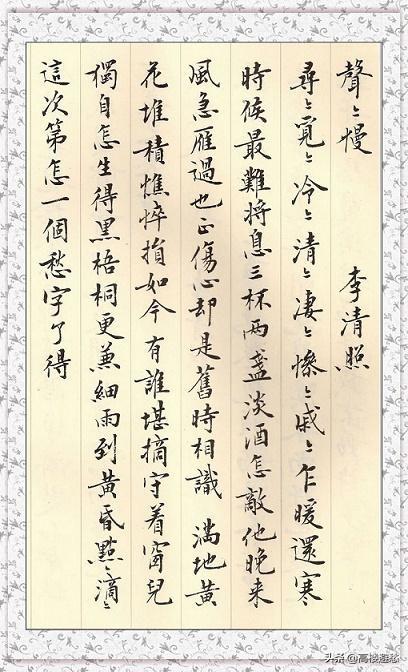 聲〻慢 李清照
尋〻覓〻冷〻清〻淒〻慘〻戚〻乍暖還寒
時候最難將息三杯两盞淡酒怎敵他晚来
風急雁過也正傷心却是舊時相識 滿地黄
花堆積憔悴損如今有誰堪摘守着窗兒
獨自怎生得黑梧桐更兼細雨到黄昏點〻滴〻
這次第怎一個愁字了得
头条@高楼遊愁